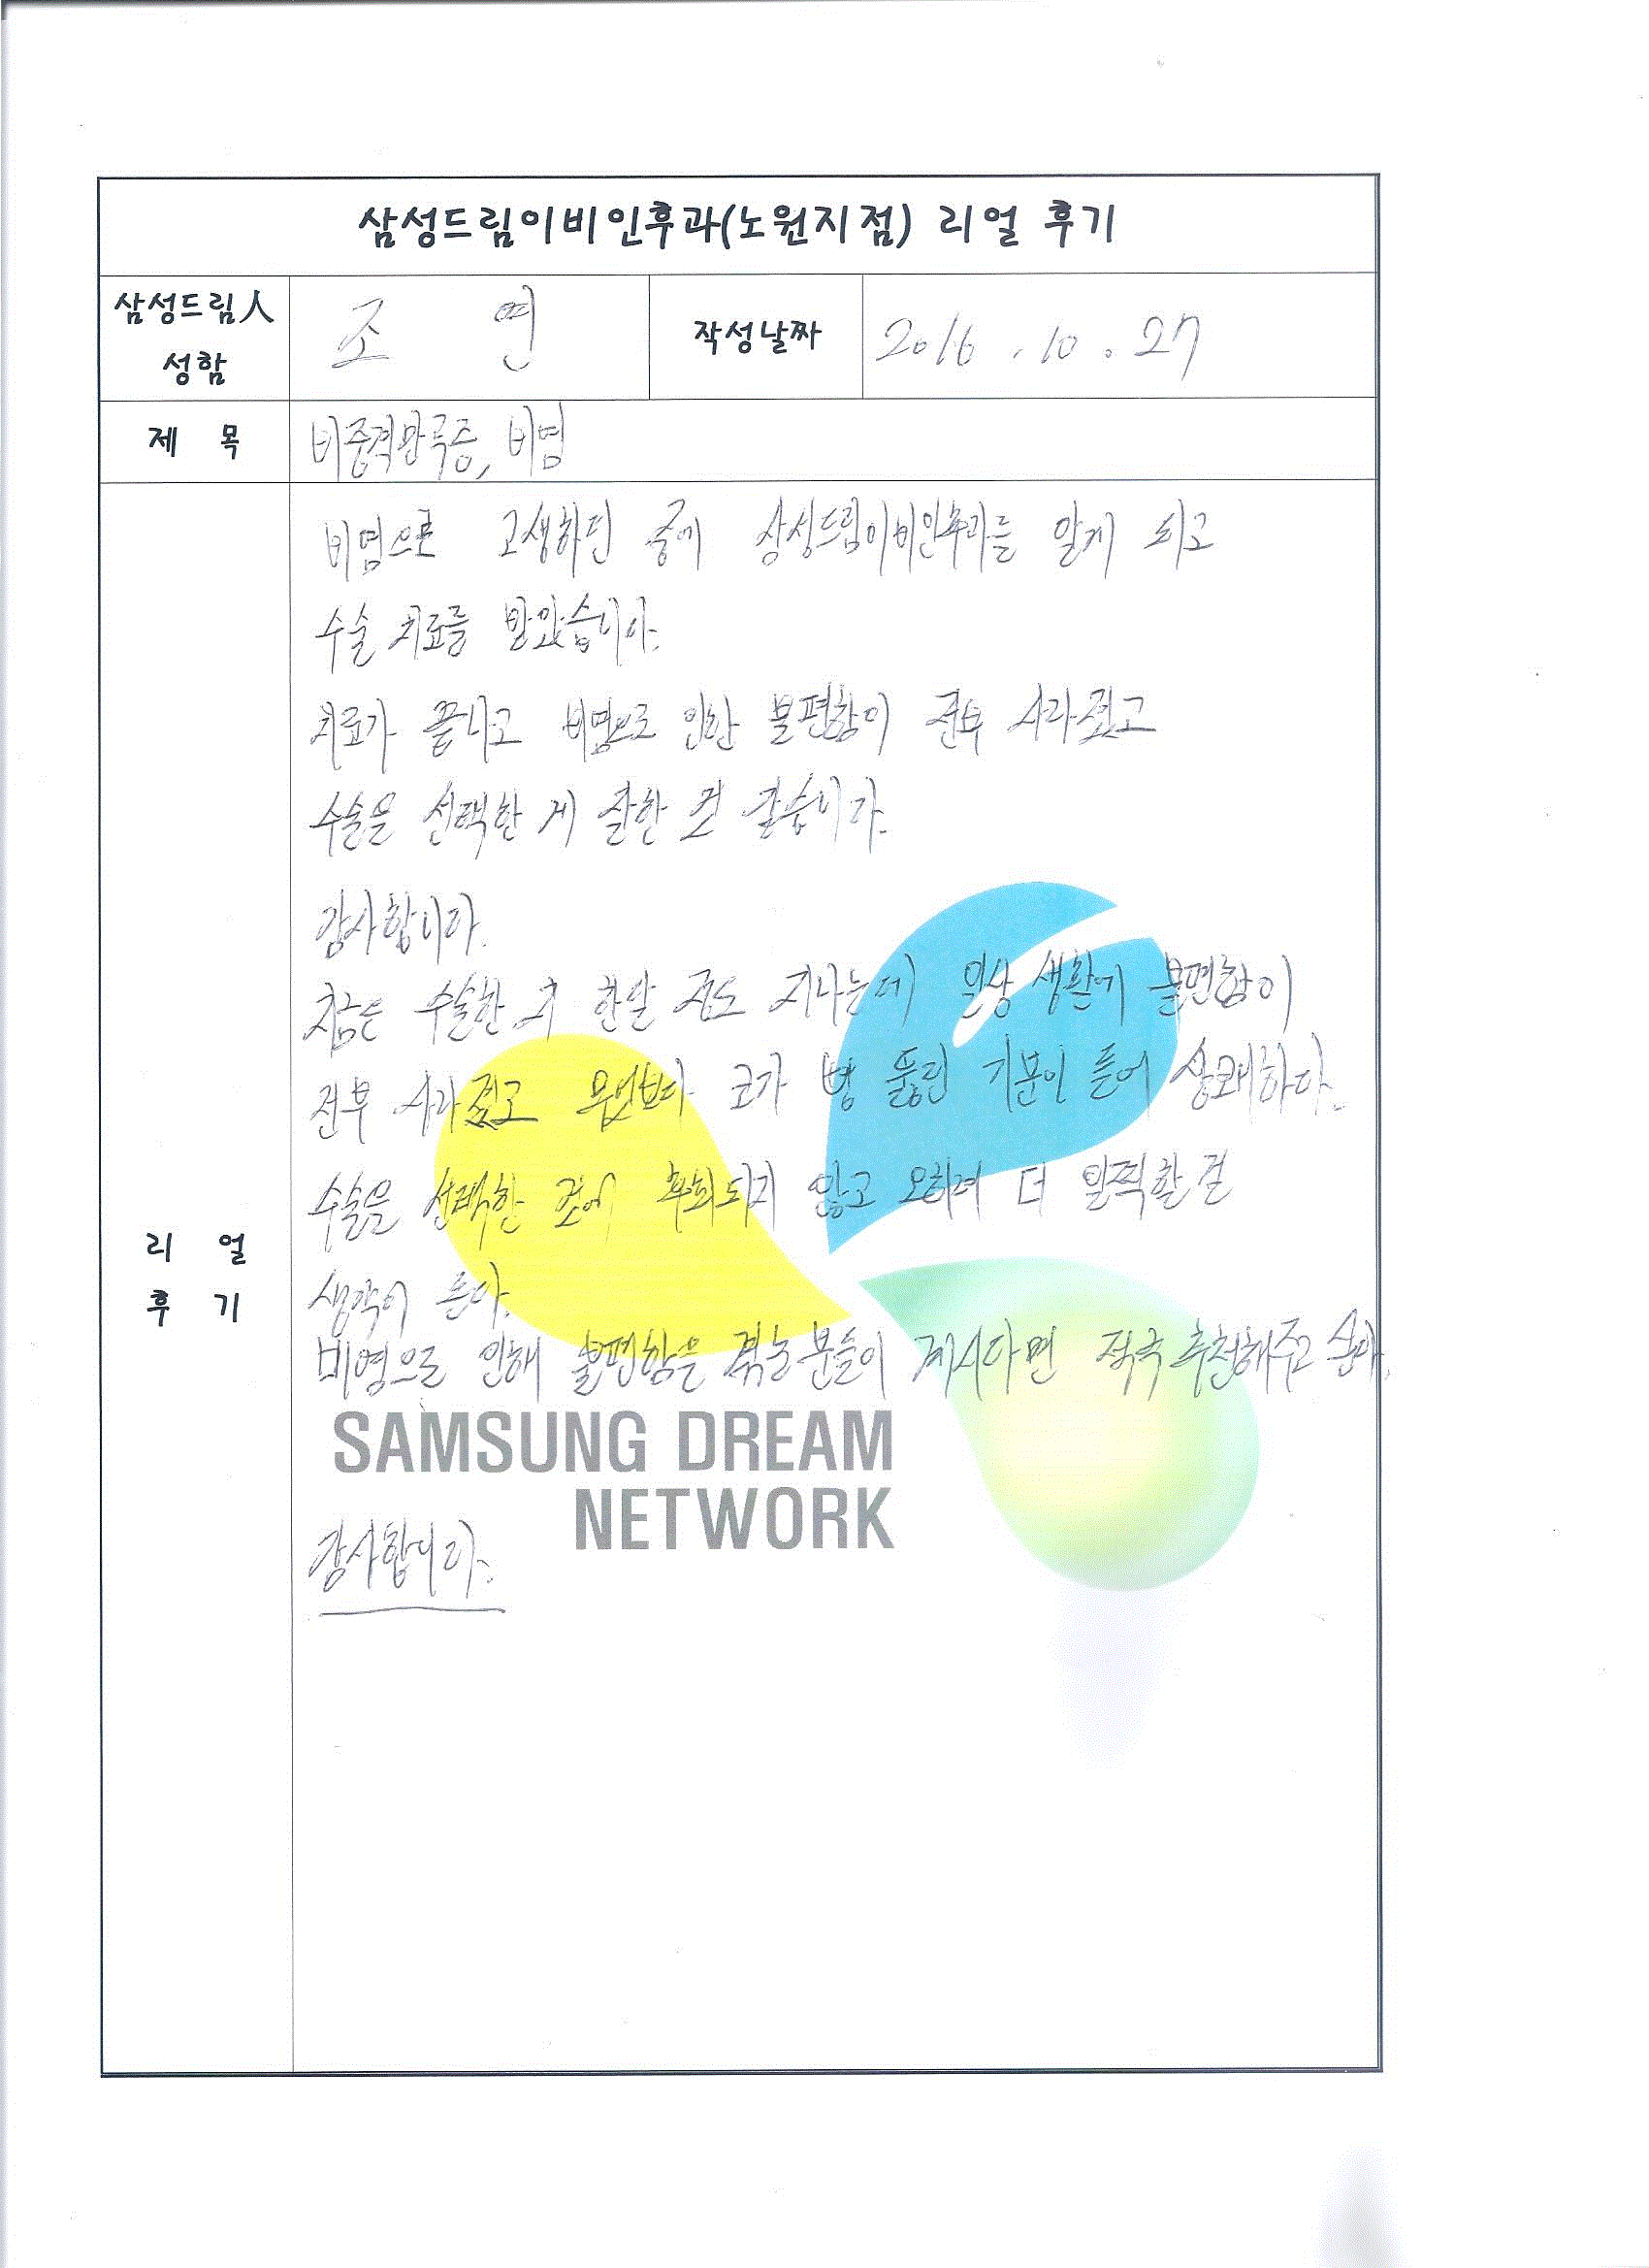 삼성드림이비인후과(노원지점) 리얼 후기
삼성드림人 성함
조 연
작성날짜
2016.10.27
제 목
비중격만곡증, 비염
리 얼 후 기
비염으로 고생하던 중에 삼성드림이비인후과를 알게 되고
수술 치료를 받았습니다.
치료가 끝나고 비염으로 인한 불편함이 전부 사라졌고
수술을 선택한 게 잘한 것 같습니다.
감사합니다.
지금은 수술한 지 한달 정도 지나는데 일상 생활에 불편함이
전부 사라졌고 무엇보다 코가 뻥 뚫린 기분이 들어 상쾌하다.
수술을 선택한 것에 후회되지 않고 오히려 더 일찍할 걸
생각이 든다.
비염으로 인해 불편함을 겪는 분들이 계시다면 적극 추천해주고 싶다.
SAMSUNG DREAM
NETWORK
감사합니다.